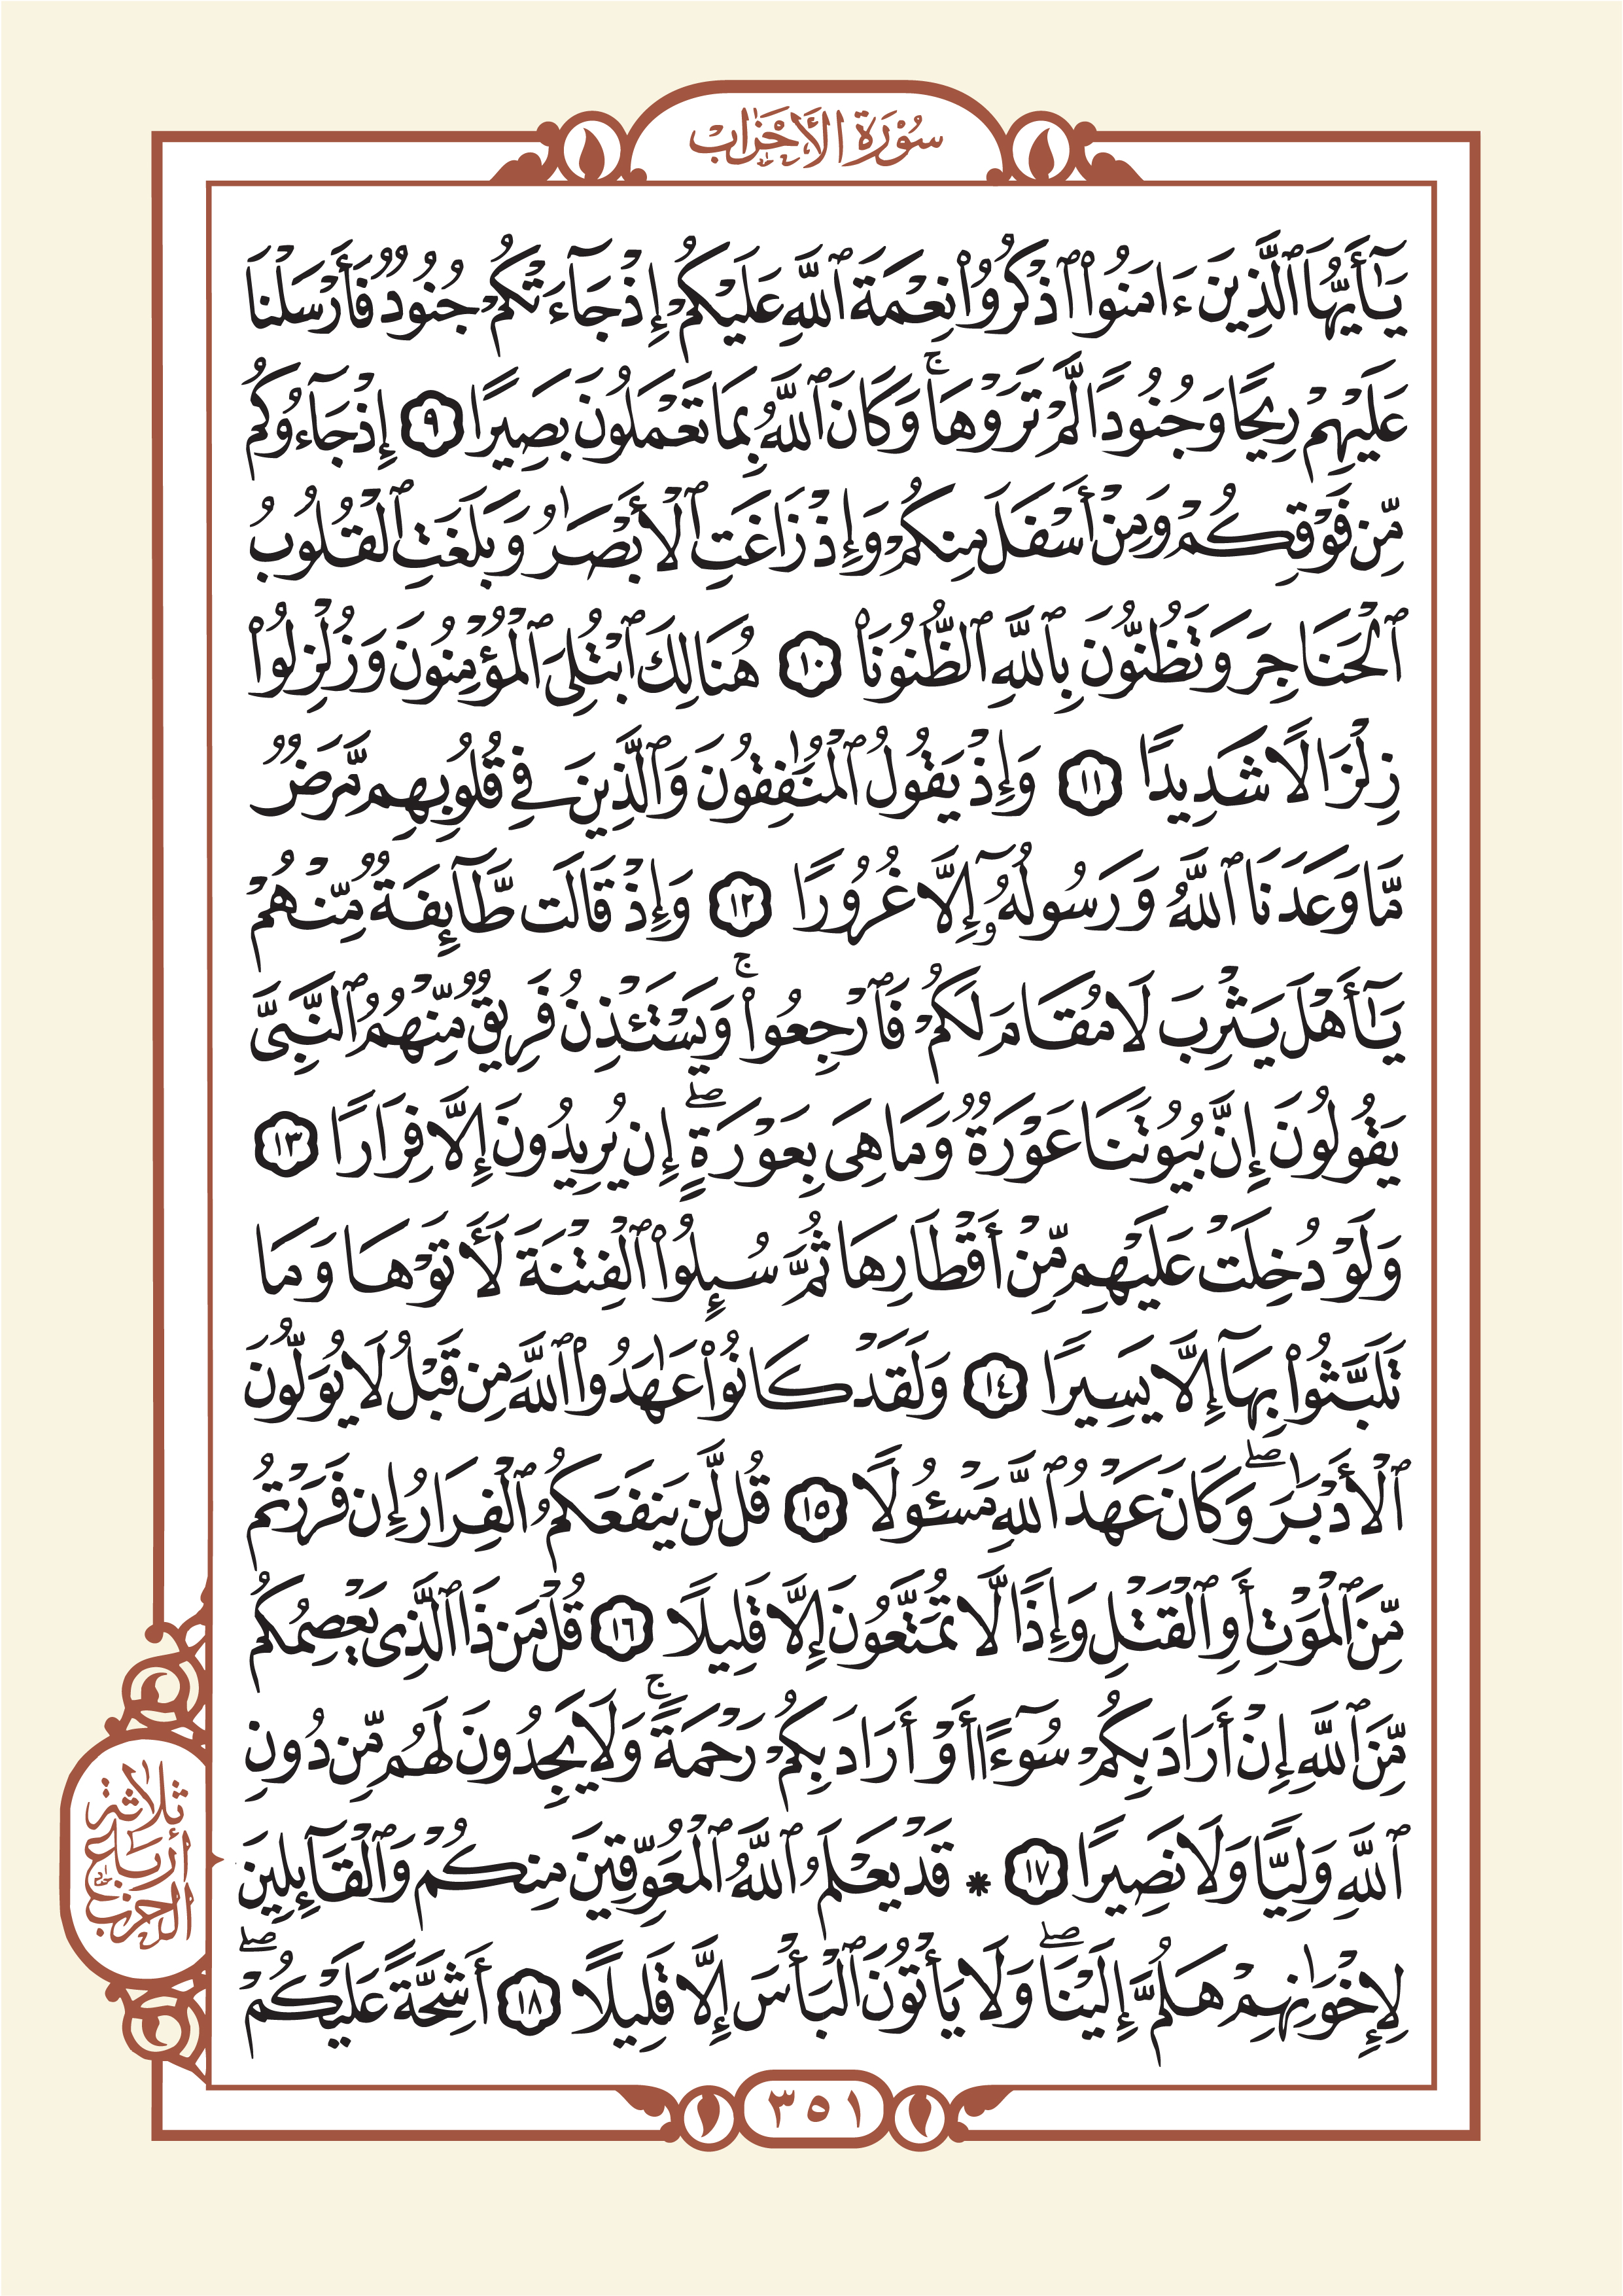 سُورَةُ الأَحْزَاب
يَٰٓأَيُّهَا ٱلَّذِينَ ءَامَنُوا۟ ٱذْكُرُوا۟ نِعْمَةَ ٱللَّهِ عَلَيْكُمْ إِذْ جَآءَتْكُمْ جُنُودٌ فَأَرْسَلْنَا
عَلَيْهِمْ رِيحًا وَجُنُودًا لَّمْ تَرَوْهَا ۚ وَكَانَ ٱللَّهُ بِمَا تَعْمَلُونَ بَصِيرًا ٩ إِذْ جَآءُوكُم
مِّن فَوْقِكُمْ وَمِنْ أَسْفَلَ مِنكُمْ وَإِذْ زَاغَتِ ٱلْأَبْصَٰرُ وَبَلَغَتِ ٱلْقُلُوبُ
ٱلْحَنَاجِرَ وَتَظُنُّونَ بِٱللَّهِ ٱلظُّنُونَا۠ ١٠ هُنَالِكَ ٱبْتُلِىَ ٱلْمُؤْمِنُونَ وَزُلْزِلُوا۟
زِلْزَالًا شَدِيدًا ١١ وَإِذْ يَقُولُ ٱلْمُنَٰفِقُونَ وَٱلَّذِينَ فِى قُلُوبِهِم مَّرَضٌ
مَّا وَعَدَنَا ٱللَّهُ وَرَسُولُهُۥٓ إِلَّا غُرُورًا ١٢ وَإِذْ قَالَت طَّآئِفَةٌ مِّنْهُمْ
يَٰٓأَهْلَ يَثْرِبَ لَا مُقَامَ لَكُمْ فَٱرْجِعُوا۟ ۚ وَيَسْتَـْٔذِنُ فَرِيقٌ مِّنْهُمُ ٱلنَّبِىَّ
يَقُولُونَ إِنَّ بُيُوتَنَا عَوْرَةٌ وَمَا هِىَ بِعَوْرَةٍ ۖ إِن يُرِيدُونَ إِلَّا فِرَارًا ١٣
وَلَوْ دُخِلَتْ عَلَيْهِم مِّنْ أَقْطَارِهَا ثُمَّ سُئِلُوا۟ ٱلْفِتْنَةَ لَأَتَوْهَا وَمَا
تَلَبَّثُوا۟ بِهَآ إِلَّا يَسِيرًا ١٤ وَلَقَدْ كَانُوا۟ عَٰهَدُوا۟ ٱللَّهَ مِن قَبْلُ لَا يُوَلُّونَ
ٱلْأَدْبَٰرَ ۖ وَكَانَ عَهْدُ ٱللَّهِ مَسْـُٔولًا ١٥ قُل لَّن يَنفَعَكُمُ ٱلْفِرَارُ إِن فَرَرْتُم
مِّنَ ٱلْمَوْتِ أَوِ ٱلْقَتْلِ وَإِذًا لَّا تُمَتَّعُونَ إِلَّا قَلِيلًا ١٦ قُلْ مَن ذَا ٱلَّذِى يَعْصِمُكُم
مِّنَ ٱللَّهِ إِنْ أَرَادَ بِكُمْ سُوٓءًا أَوْ أَرَادَ بِكُمْ رَحْمَةً ۚ وَلَا يَجِدُونَ لَهُم مِّن دُونِ
ٱللَّهِ وَلِيًّا وَلَا نَصِيرًا ١٧ * قَدْ يَعْلَمُ ٱللَّهُ ٱلْمُعَوِّقِينَ مِنكُمْ وَٱلْقَآئِلِينَ
لِإِخْوَٰنِهِمْ هَلُمَّ إِلَيْنَا ۖ وَلَا يَأْتُونَ ٱلْبَأْسَ إِلَّا قَلِيلًا ١٨ أَشِحَّةً عَلَيْكُمْ ۖ
ثلاثة
أرباع
الحزب
٣٥١